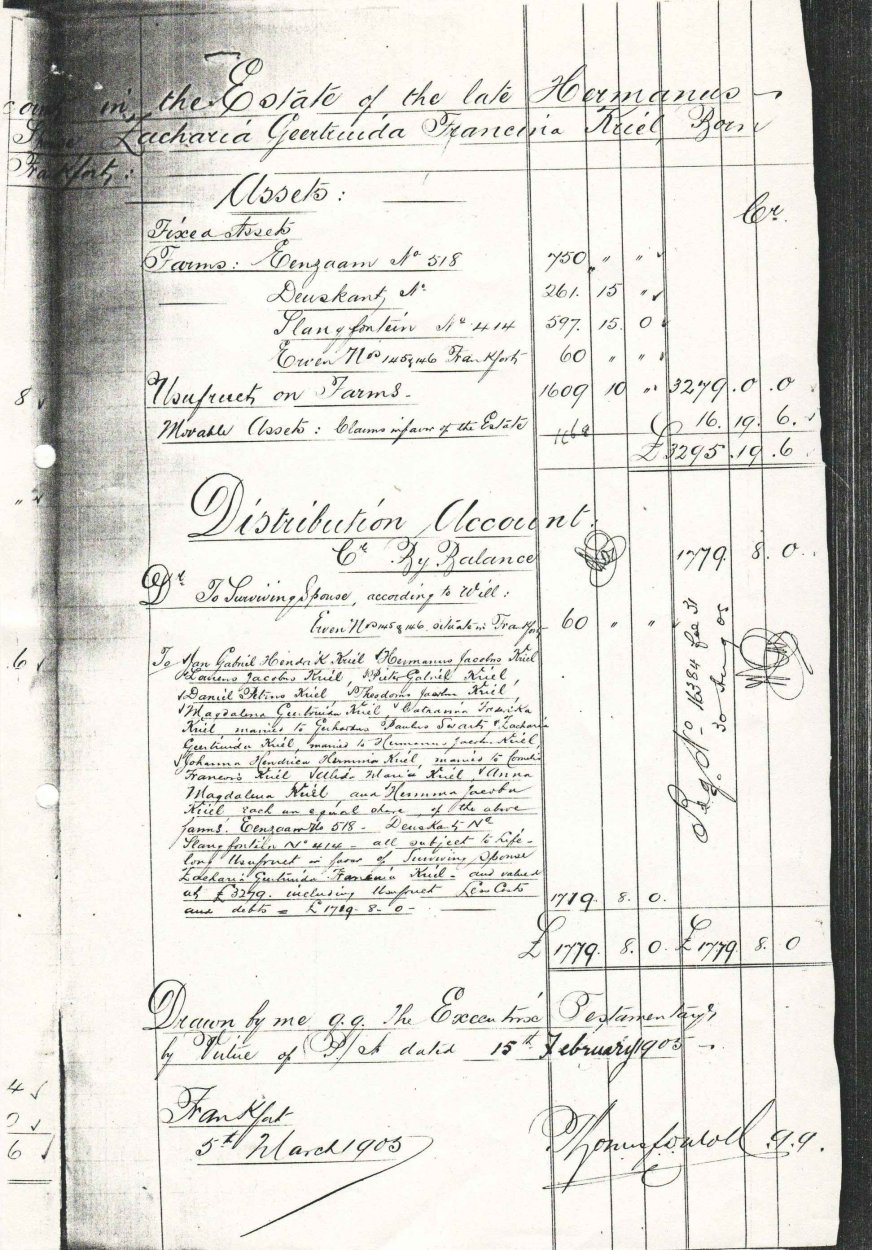 in the Estate of the late Hermanus
Zacharia Geertruida Francina Kriel, Born
Frankfort:
Assets:
Cr.
Fixed Assets
Farms: Eenzaam No 518 750 " "
Deuskant, No 261. 15 "
Slangfontein No 414 597. 15. 0
Erven Nos 145 & 146 Frankfort 60 " "
8 Usufruct on Farms. 1609 10 " 3279. 0. 0
Movable Assets: Claims in favor of the Estate 16. 19. 6.
£ 3295. 19. 6
Distribution Account.
Cr By Balance 1779. 8. 0.
Dr To Surviving Spouse, according to Will:
Erven Nos 145 & 146 situate in Frankfort 60 " "
6 To Jan Gabriel Hendrik Kriel Hermanus Jacobus Kriel
Lourens Jacobus Kriel, Pieter Gabriel Kriel,
Daniel Kriel Theodorus Jacobus Kriel,
Magdalena Geertruida Kriel Catharina Frederika
Kriel, married to Gerhardus Paulus Swarts Zacharia
Geertruida Kriel, married to Hermanus Jacobus Kriel,
Johanna Hendrica Hermina Kriel, married to
Francois Kriel Maria Kriel, Anna
Magdalena Kriel and Hermina Jacoba
Kriel each an equal share, of the above
farms: Eenzaam No 518 - Deuskant, No
Slangfontein No 414 - all subject to Life-
long Usufruct in favor of Surviving Spouse
Zacharia Geertruida Francina Kriel - and valued
at £3279. including Usufruct Less Costs
and debts = £1719. 8. 0 - 1719. 8. 0.
£ 1779. 8. 0. £ 1779 8. 0
No 16384 fee 3/
30 Aug 05
Drawn by me q.q. the Executrix Testamentary,
by Virtue of P/A dated 15th February 1905
4
6
Frankfort
5th March 1905
q.q.